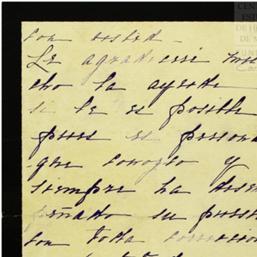 con usted.
Le agradeceré mu
cho la ayude
si le es posible
pues es persona
que conozco y
siempre ha desem
peñado su
con toda